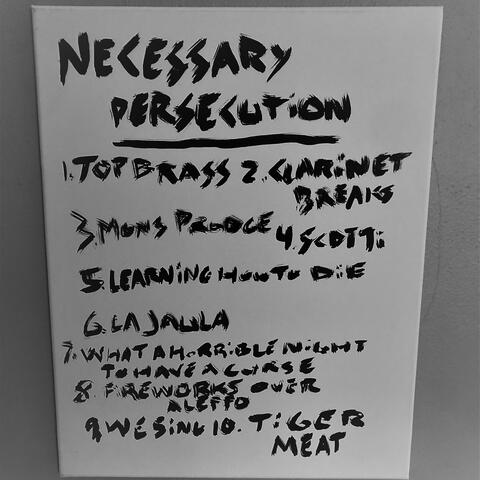 NECESSARY
PERSECUTION
1. TOP BRASS 2. CLARINET
BREAKS
3. MONS PRODGE 4. SCOTTi
5. LEARNiNG HOW TO DiE
6. LA JAULA
7. WHAT A HORRIBLE NIGHT
TO HAVE A CURSE
8. FiREWORKS OVER
ALEPPO
9. WE SiNG 10. TiGER
MEAT